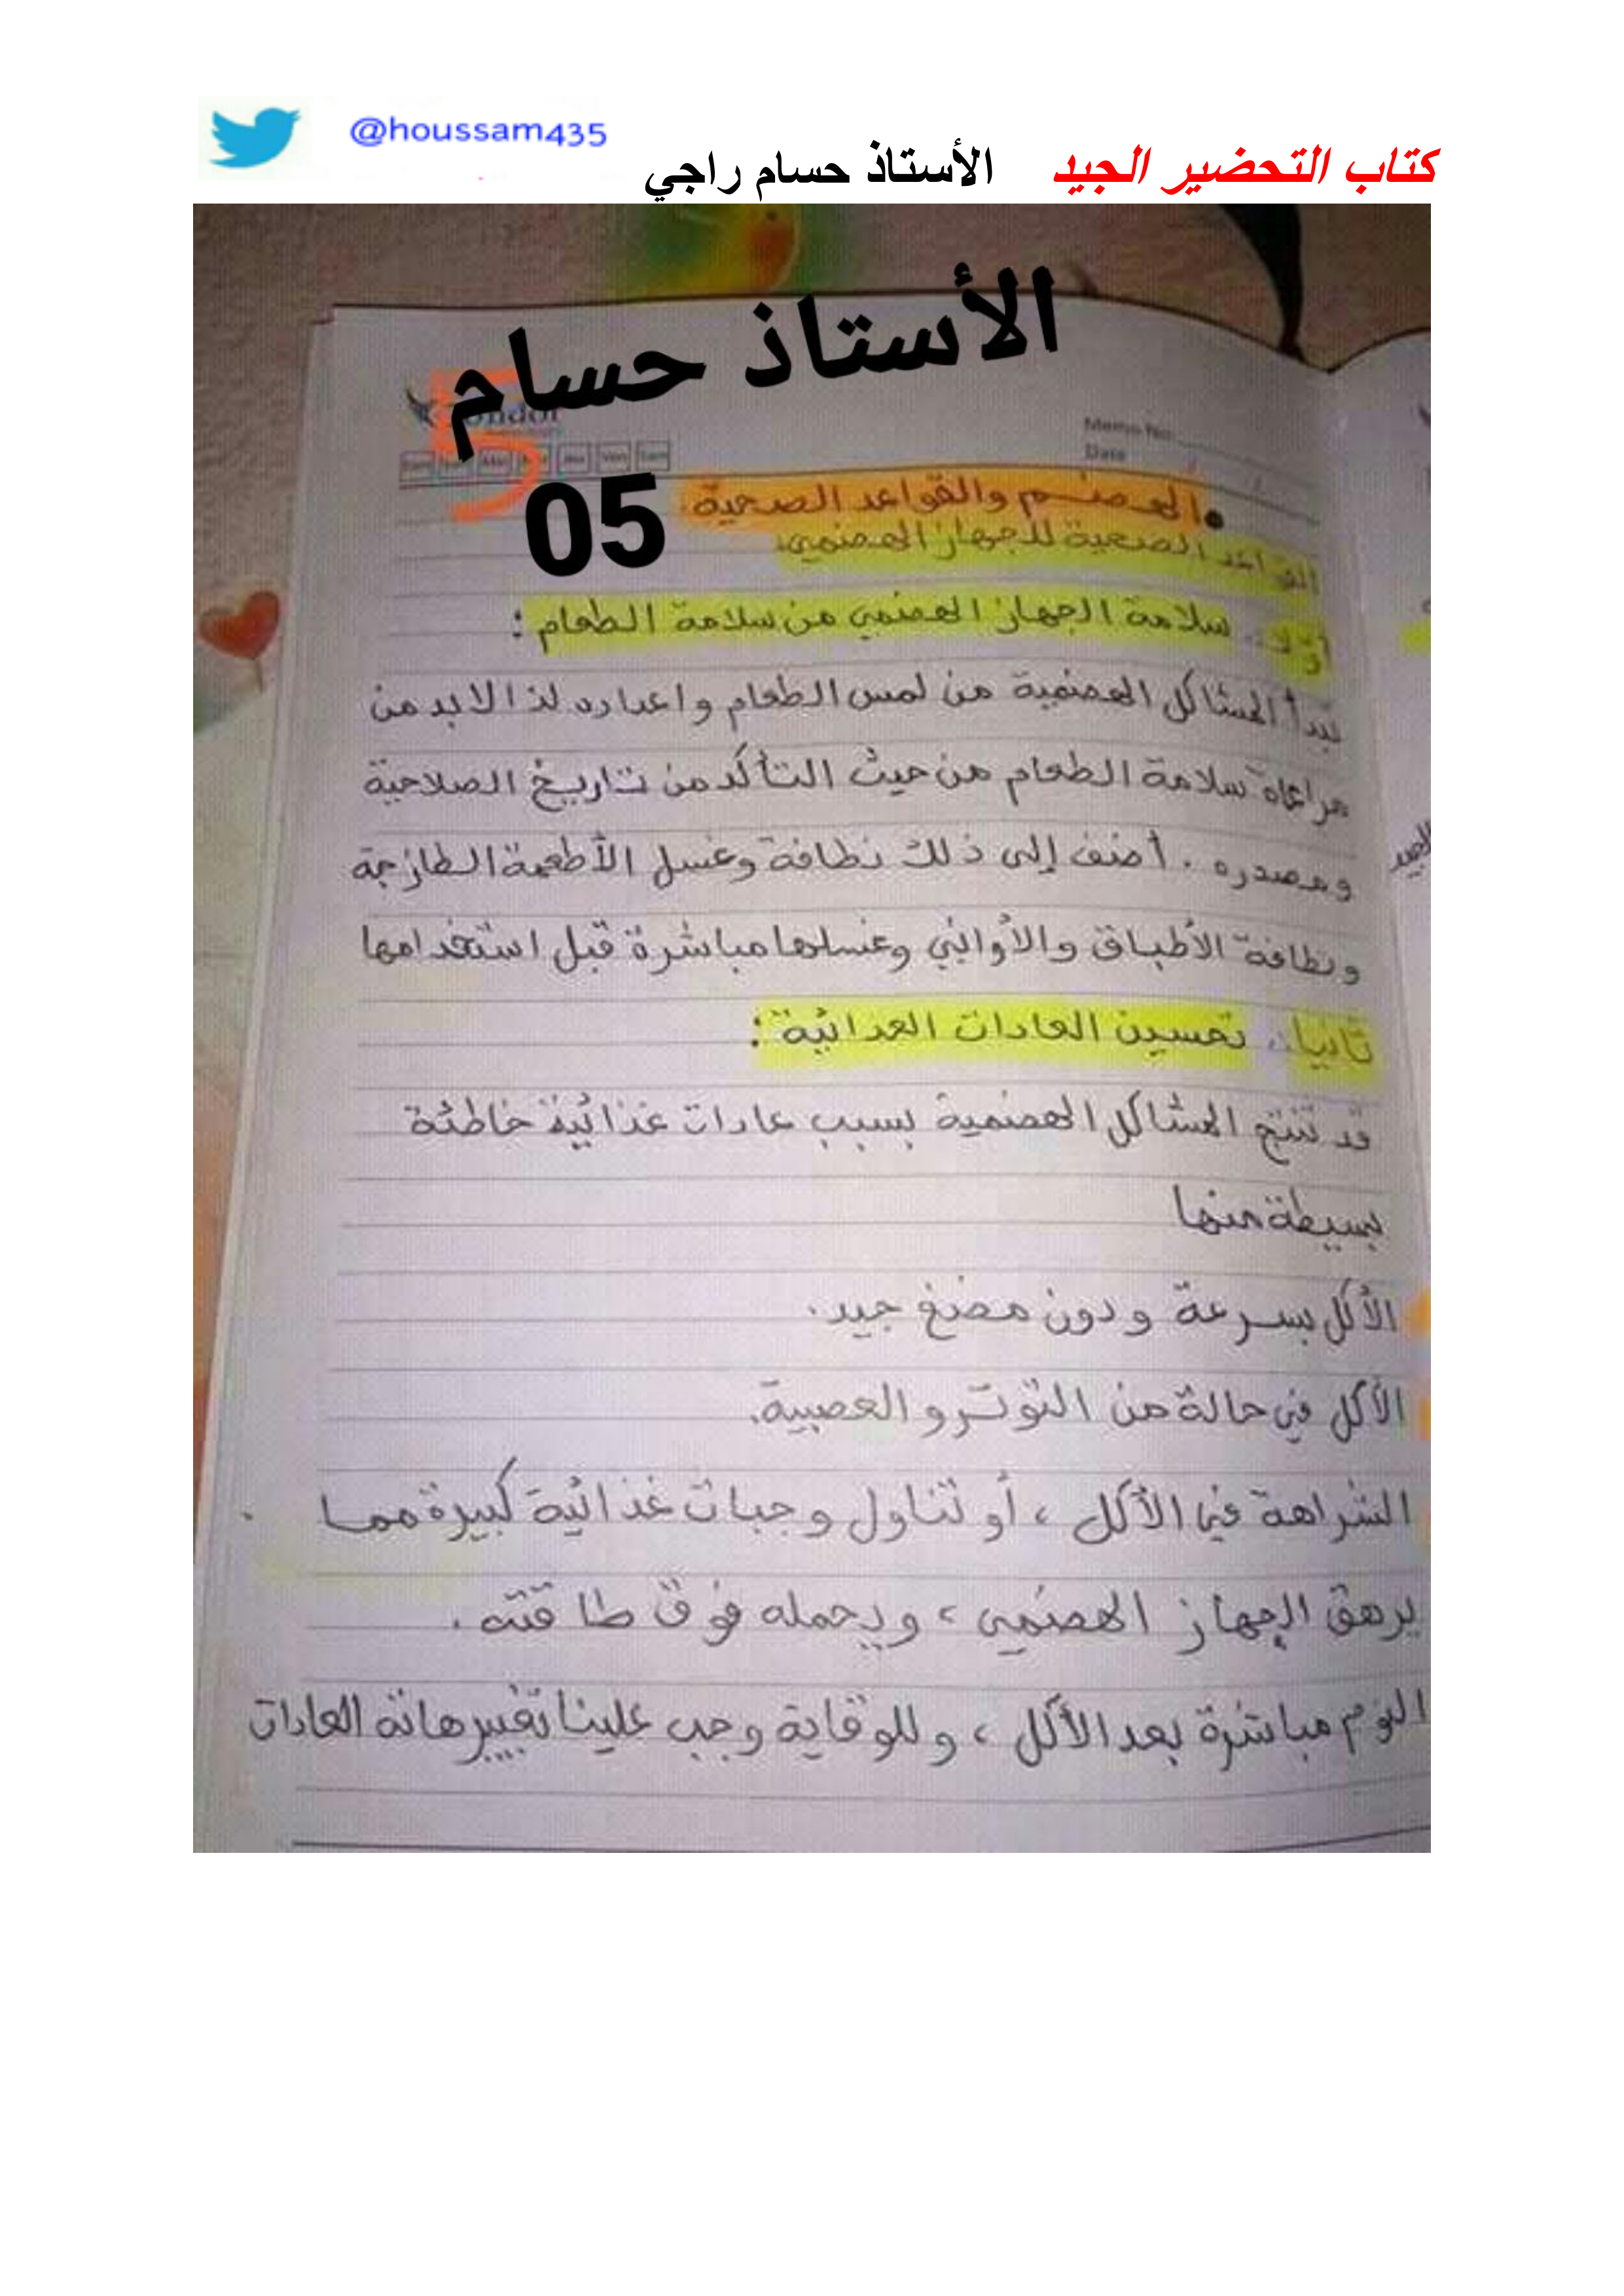 @houssam435
كتاب التحضير الجيد الأستاذ حسام راجي
الأستاذ حسام
05
Memo No
Date
الهضم والقواعد الصحية.
القواعد الصحية للجهاز الهضمي.
أولا: سلامة الجهاز الهضمي من سلامة الطعام :
تبدأ المشاكل الهضمية من لمس الطعام واعداده لذا لابد من
مراعاة سلامة الطعام من حيث التأكد من تاريخ الصلاحية
ومصدره . أضف إلى ذلك نظافة وغسل الأطعمة الطازجة
ونظافة الأطباق والأواني وغسلها مباشرة قبل استخدامها
ثانيا: تحسين العادات الغدائية :
قد تنتج المشاكل الهضمية بسبب عادات غذائية خاطئة
بسيطة منها
الأكل بسرعة ودون مضغ جيد.
الأكل في حالة من التوتر و العصبية.
الشراهة في الأكل ، أو تناول وجبات غذائية كبيرة مما
يرهق الجهاز الهضمي ، ويحمله فوق طاقته .
النوم مباشرة بعد الأكل ، وللوقاية وجب علينا تغيير هاته العادات